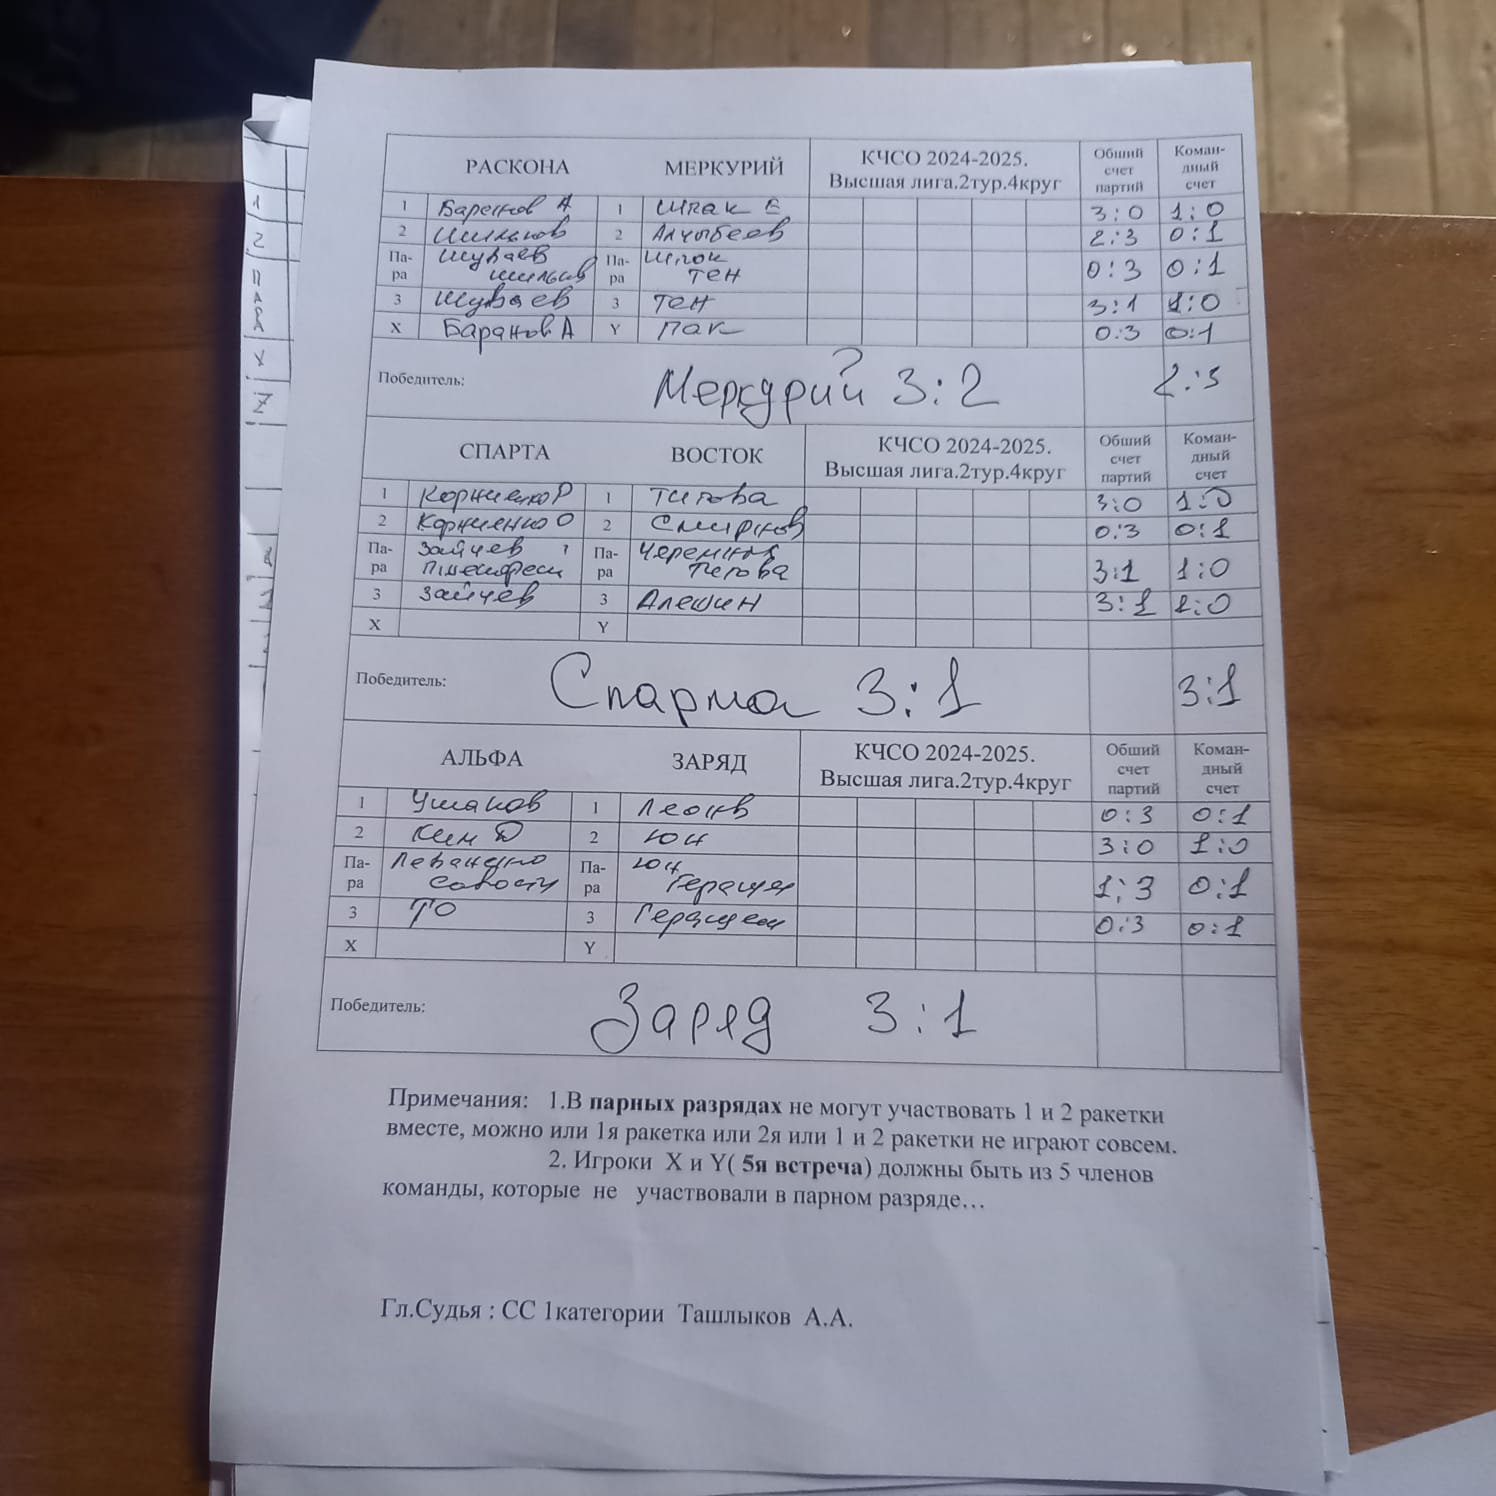 РАСКОНА МЕРКУРИЙ КЧСО 2024-2025. Высшая лига.2тур.4круг Общий счет партий Коман-дный счет
1 Баранов А 1 Шпак Е 3:0 1:0
2 Шильнов 2 Алчубеев 2:3 0:1
Па-ра Шуваев 
Па-ра Шпак Тен 0:3 0:1
3 Шуваев 3 Тен 3:1 1:0
X Баранов А Y Пак 0:3 0:1
Победитель: Меркурий 3:2 2:3
СПАРТА ВОСТОК КЧСО 2024-2025. Высшая лига.2тур.4круг Общий счет партий Коман-дный счет
1 Корниенко Р 1 Титова 3:0 1:0
2 Корниенко О 2 Смирнов 0:3 0:1
Па-ра Зайцев Па-ра Титова 3:1 1:0
3 Зайцев 3 Алешин 3:1 1:0
X Y
Победитель: Спарта 3:1 3:1
АЛЬФА ЗАРЯД КЧСО 2024-2025. Высшая лига.2тур.4круг Общий счет партий Коман-дный счет
1 Ушаков 1 Леонов 0:3 0:1
2 Ким D 2 Юн 3:0 1:0
Па-ра Па-ра Юн 1:3 0:1
3 ТО 3 0:3 0:1
X Y
Победитель: Заряд 3:1
Примечания: 1.В парных разрядах не могут участвовать 1 и 2 ракетки
вместе, можно или 1я ракетка или 2я или 1 и 2 ракетки не играют совсем.
2. Игроки X и Y( 5я встреча) должны быть из 5 членов
команды, которые не участвовали в парном разряде…
Гл.Судья : СС 1категории Ташлыков А.А.